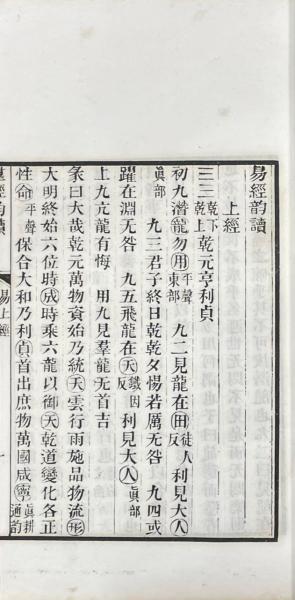 易經韵讀
上經
☰☰乾下乾上乾元亨利貞
初九潛龍勿用平聲東部　九二見龍在田徒人反利見大人
眞部　九三君子終日乾乾夕惕若厲无咎　九四或
躍在淵无咎　九五飛龍在天鐵因反利見大人眞部
上九亢龍有悔　用九見羣龍无首吉
彖曰大哉乾元萬物資始乃統天雲行雨施品物流形
大明終始六位時成時乘六龍以御天乾道變化各正
性命平聲保合大和乃利貞首出庶物萬國咸寧眞耕通韵
易上經